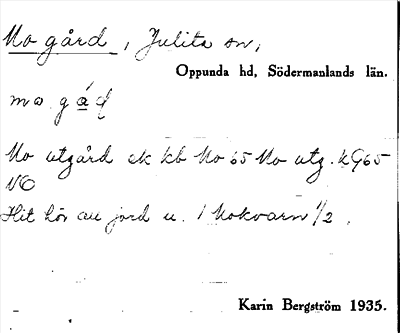 Mo gård, Julita sn,
Oppunda hd, Södermanlands län.
mo. gáḍ
Mo utgård ek kb No 65 Mo utg. k G65
NO
Hit hör au jord u. 1 Mokvarn 1/2.
Karin Bergström 1935.